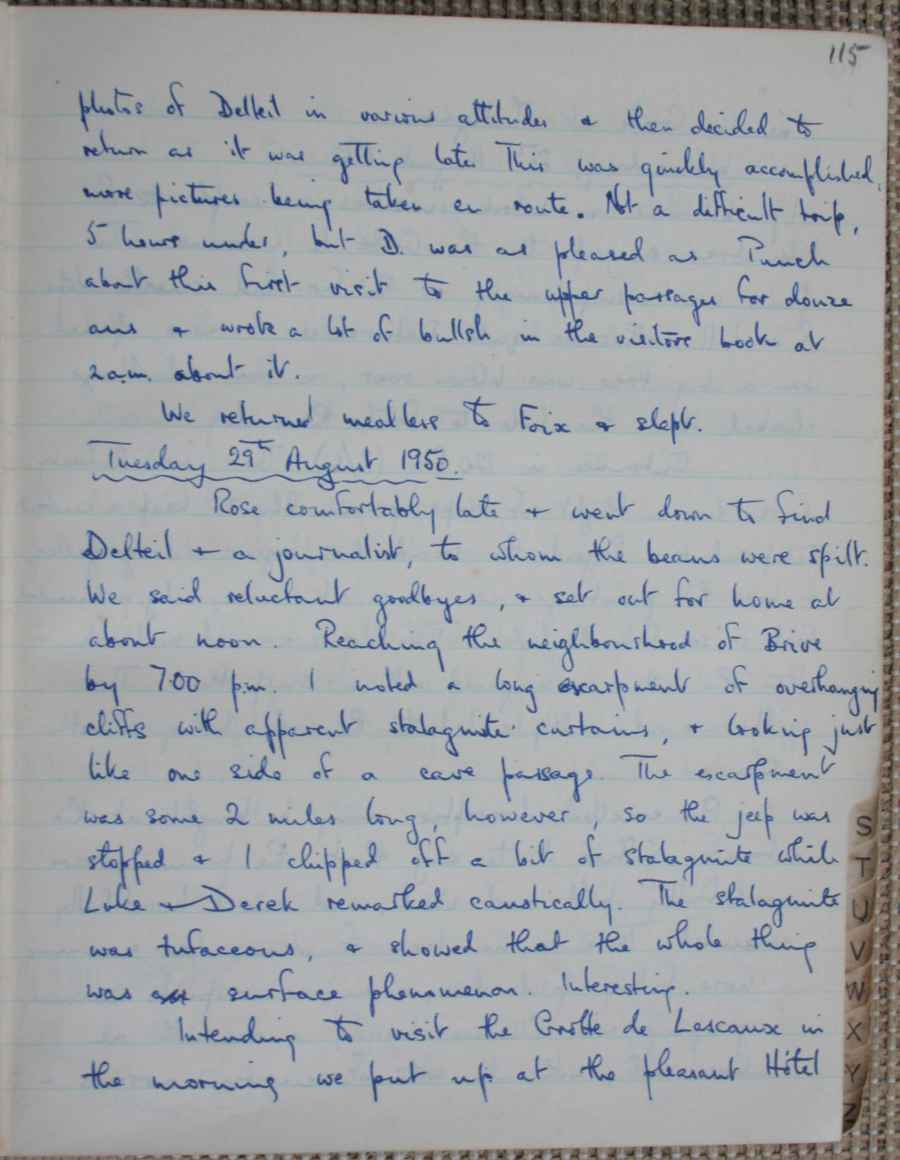 115
photos of Delteil in various attitudes & then decided to
return as it was getting late. This was quickly accomplished,
more pictures being taken en route. Not a difficult trip,
5 hours under, but D. was as pleased as Punch
about this first visit to the upper passages for douze
ans & wrote a lot of bullsh in the visitors book at
2 a.m. about it.
We returned mealless to Foix & slept.
Tuesday 29th August 1950.
Rose comfortably late & went down to find
Delteil & a journalist, to whom the beans were spilt.
We said reluctant goodbyes, & set out for home at
about noon. Reaching the neighbourhood of Brive
by 7.00 p.m. I noted a long escarpment of overhanging
cliffs with apparent stalagmite curtains, & looking just
like one side of a cave passage. The escarpment
was some 2 miles long, however, so the jeep was
stopped & I chipped off a bit of stalagmite while
Luke & Derek remarked caustically. The stalagmite
was tufaceous, & showed that the whole thing
was a surface phenomenon. Interesting.
Intending to visit the Grotte de Lascaux in
the morning we put up at the pleasant Hôtel
S
T
U
V
W
X
Y
Z